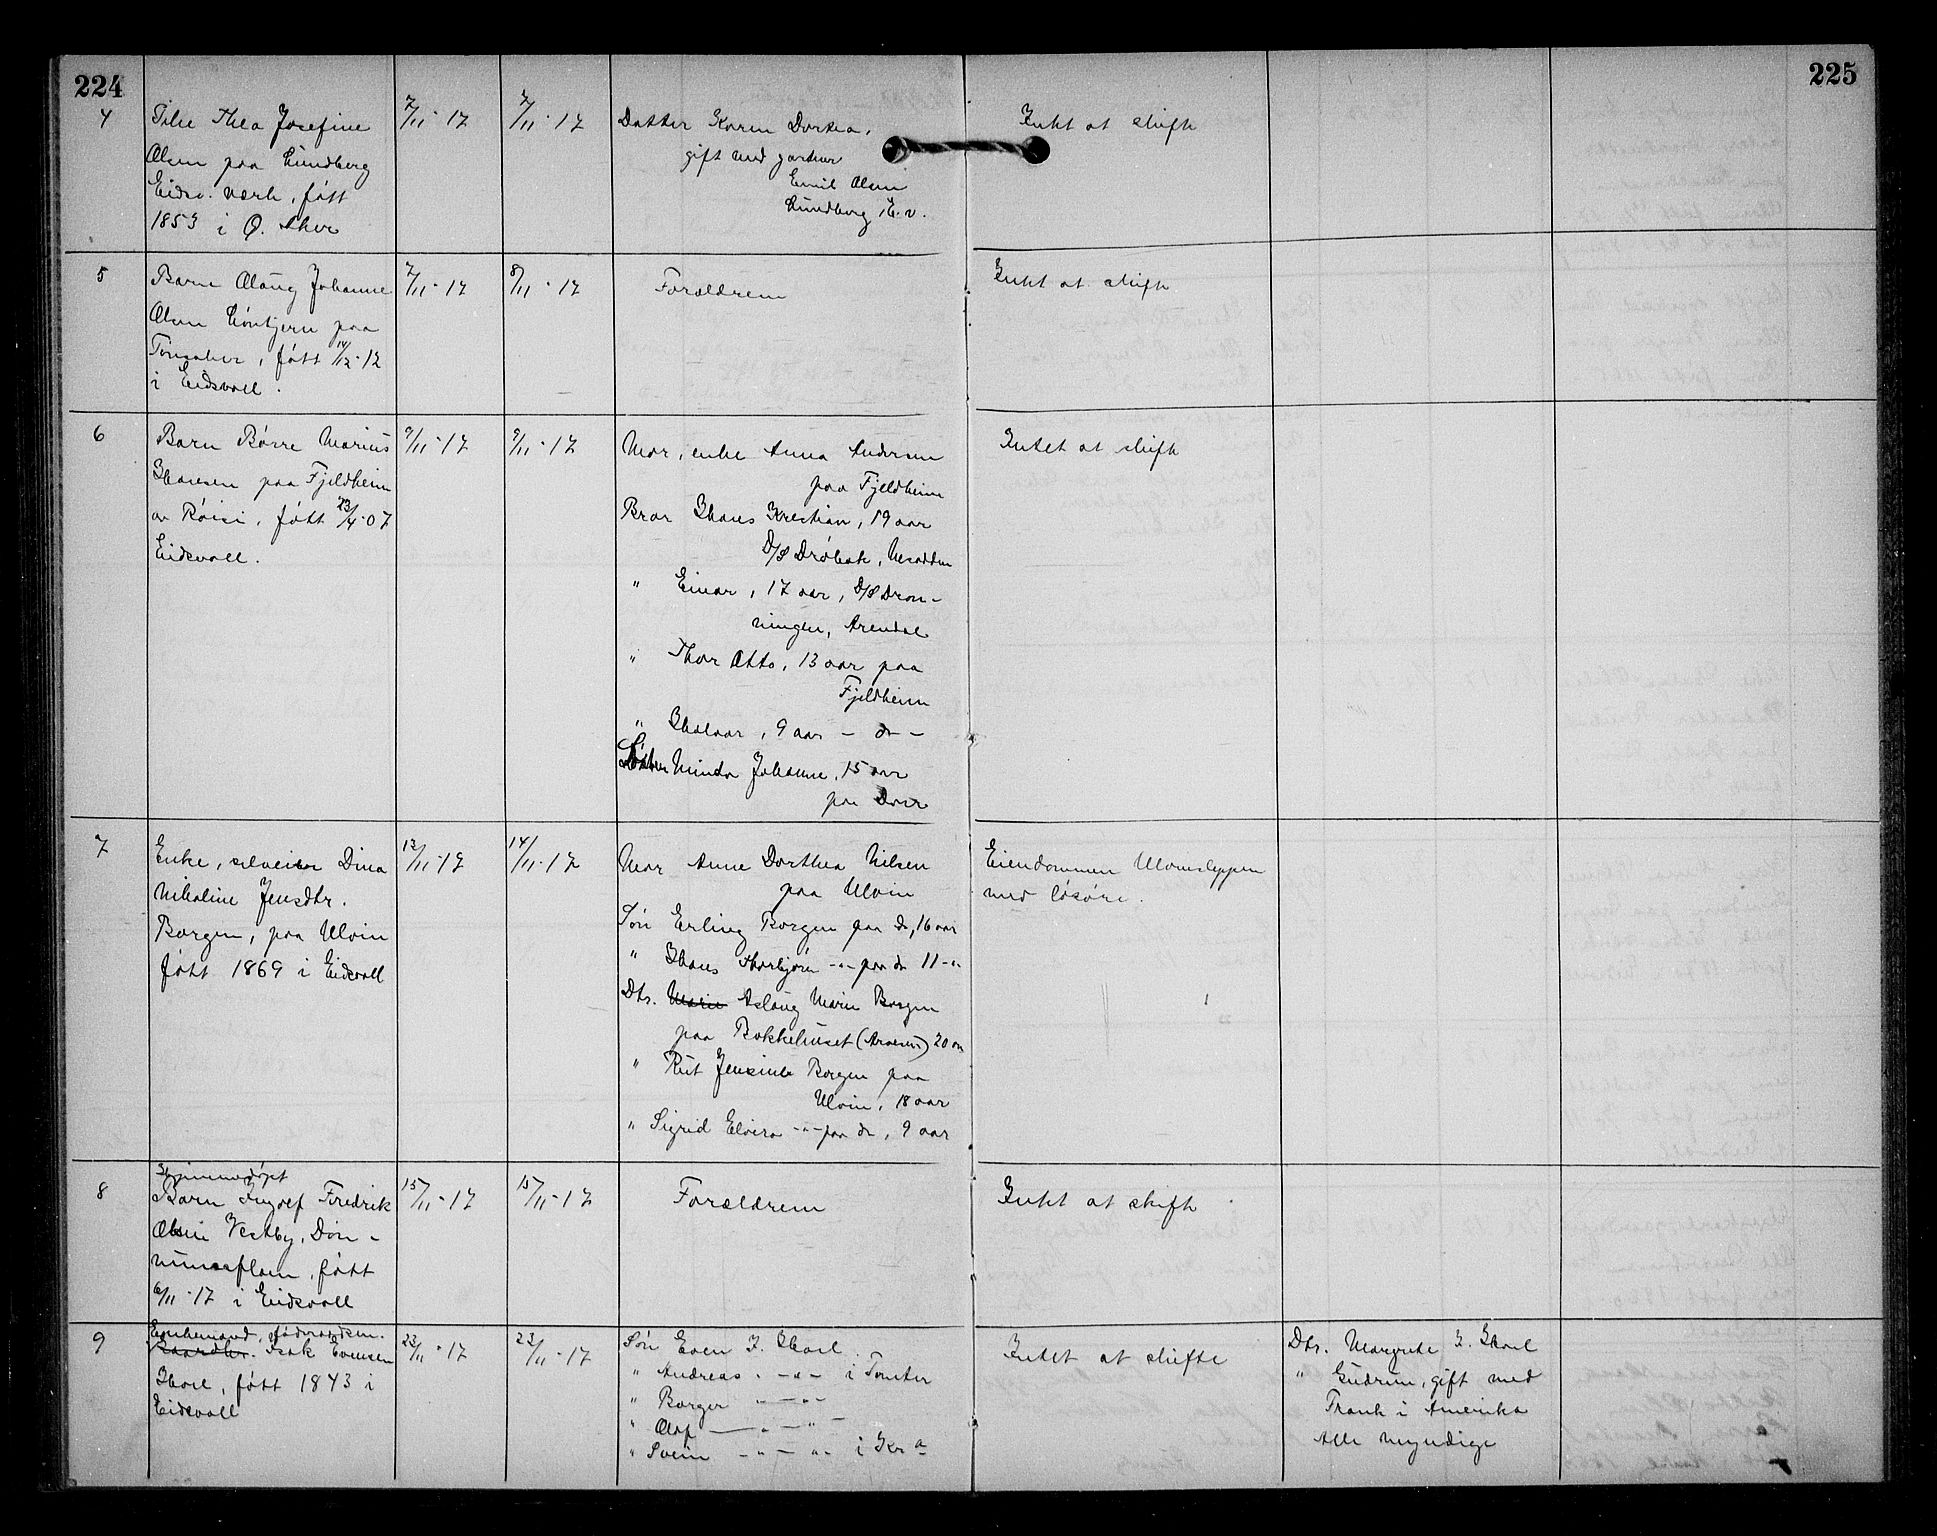 224
4
Thea Josefine
Olsen paa Lundberg
Eidsv. verk, født
1853 i Ø. Aker
7/11-17
7/11-17
Datter Karen Dortea,
gift med gartner
Emil Olsen
Lundberg, E.v.
Intet at skifte
5
Barn Olaug Johanne
Olsen paa
født 14/12-12
i Eidsvoll.
7/11-17
8/11-17
Forældrene
Intet at skifte
6
Barn Børre Marius
Hansen paa Fjeldheim
av Røisi, født 23/4-07
Eidsvoll.
9/11-17
9/11-17
Mor, enke Anna Andersen
paa Fjeldheim
Bror Hans Kristian, 19 aar
D/S Drøbak, Nesodden
" Einar, 17 aar, D/S Dron-
ningen, Arendal
" Thor Otto, 13 aar paa
Fjeldheim
" Halvor, 9 aar - do -
Søster Minda Johanne, 15 aar
paa
Intet at skifte
7
Enke, selveier Dina
Nikoline Jensdtr.
Borgen, paa Ulvin
født 1869 i Eidsvoll
12/11-17
14/11-17
Mor Anne Dorthea Nilsen
paa Ulvin
Søn Erling Borgen paa do, 16 aar
" Hans Thorbjørn -"- paa do 11 -"-
Dtr. Marie Aslaug Marie Borgen
paa Bakkehuset 20 aar
" Rut Jensine Borgen paa
Ulvin, 18 aar
" Sigrid Elvira -"- paa do, 9 aar
Eiendommen Ulvinsleppen
med løsøre.
8
Hjemmedøpt
Barn Ingolf Fredrik
Olsen Vestby, Døn-
født
6/11-17 i Eidsvoll
15/11-17
15/11-17
Forældrene
Intet at skifte
9
Enkemand, føderaadsm.
Isak Evensen
Hoel, født 1843 i
Eidsvoll
22/11-17
23/11-17
Søn Even I. Hoel
" Andreas -"- i
" Borger -"-
" Olaf -"-
" Svein -"- i Kr.a
Intet at skifte
Dtr. Margrete I. Hoel
" Gudrun, gift med
Frank i Amerika
Alle myndige
225